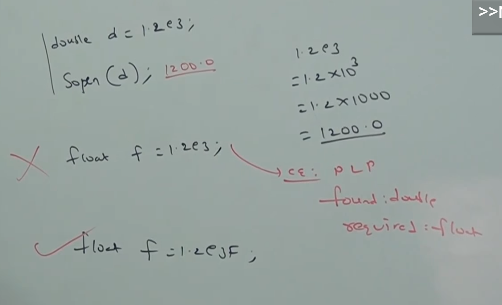 >>
double d = 1.2e3;
Sopln(d); 1200.0
1.2e3
= 1.2 × 10³
= 1.2 × 1000
= 1200.0
✗ float f = 1.2e3;
→ CE: PLP
found: double
required: float
✓ float f = 1.2e3F;